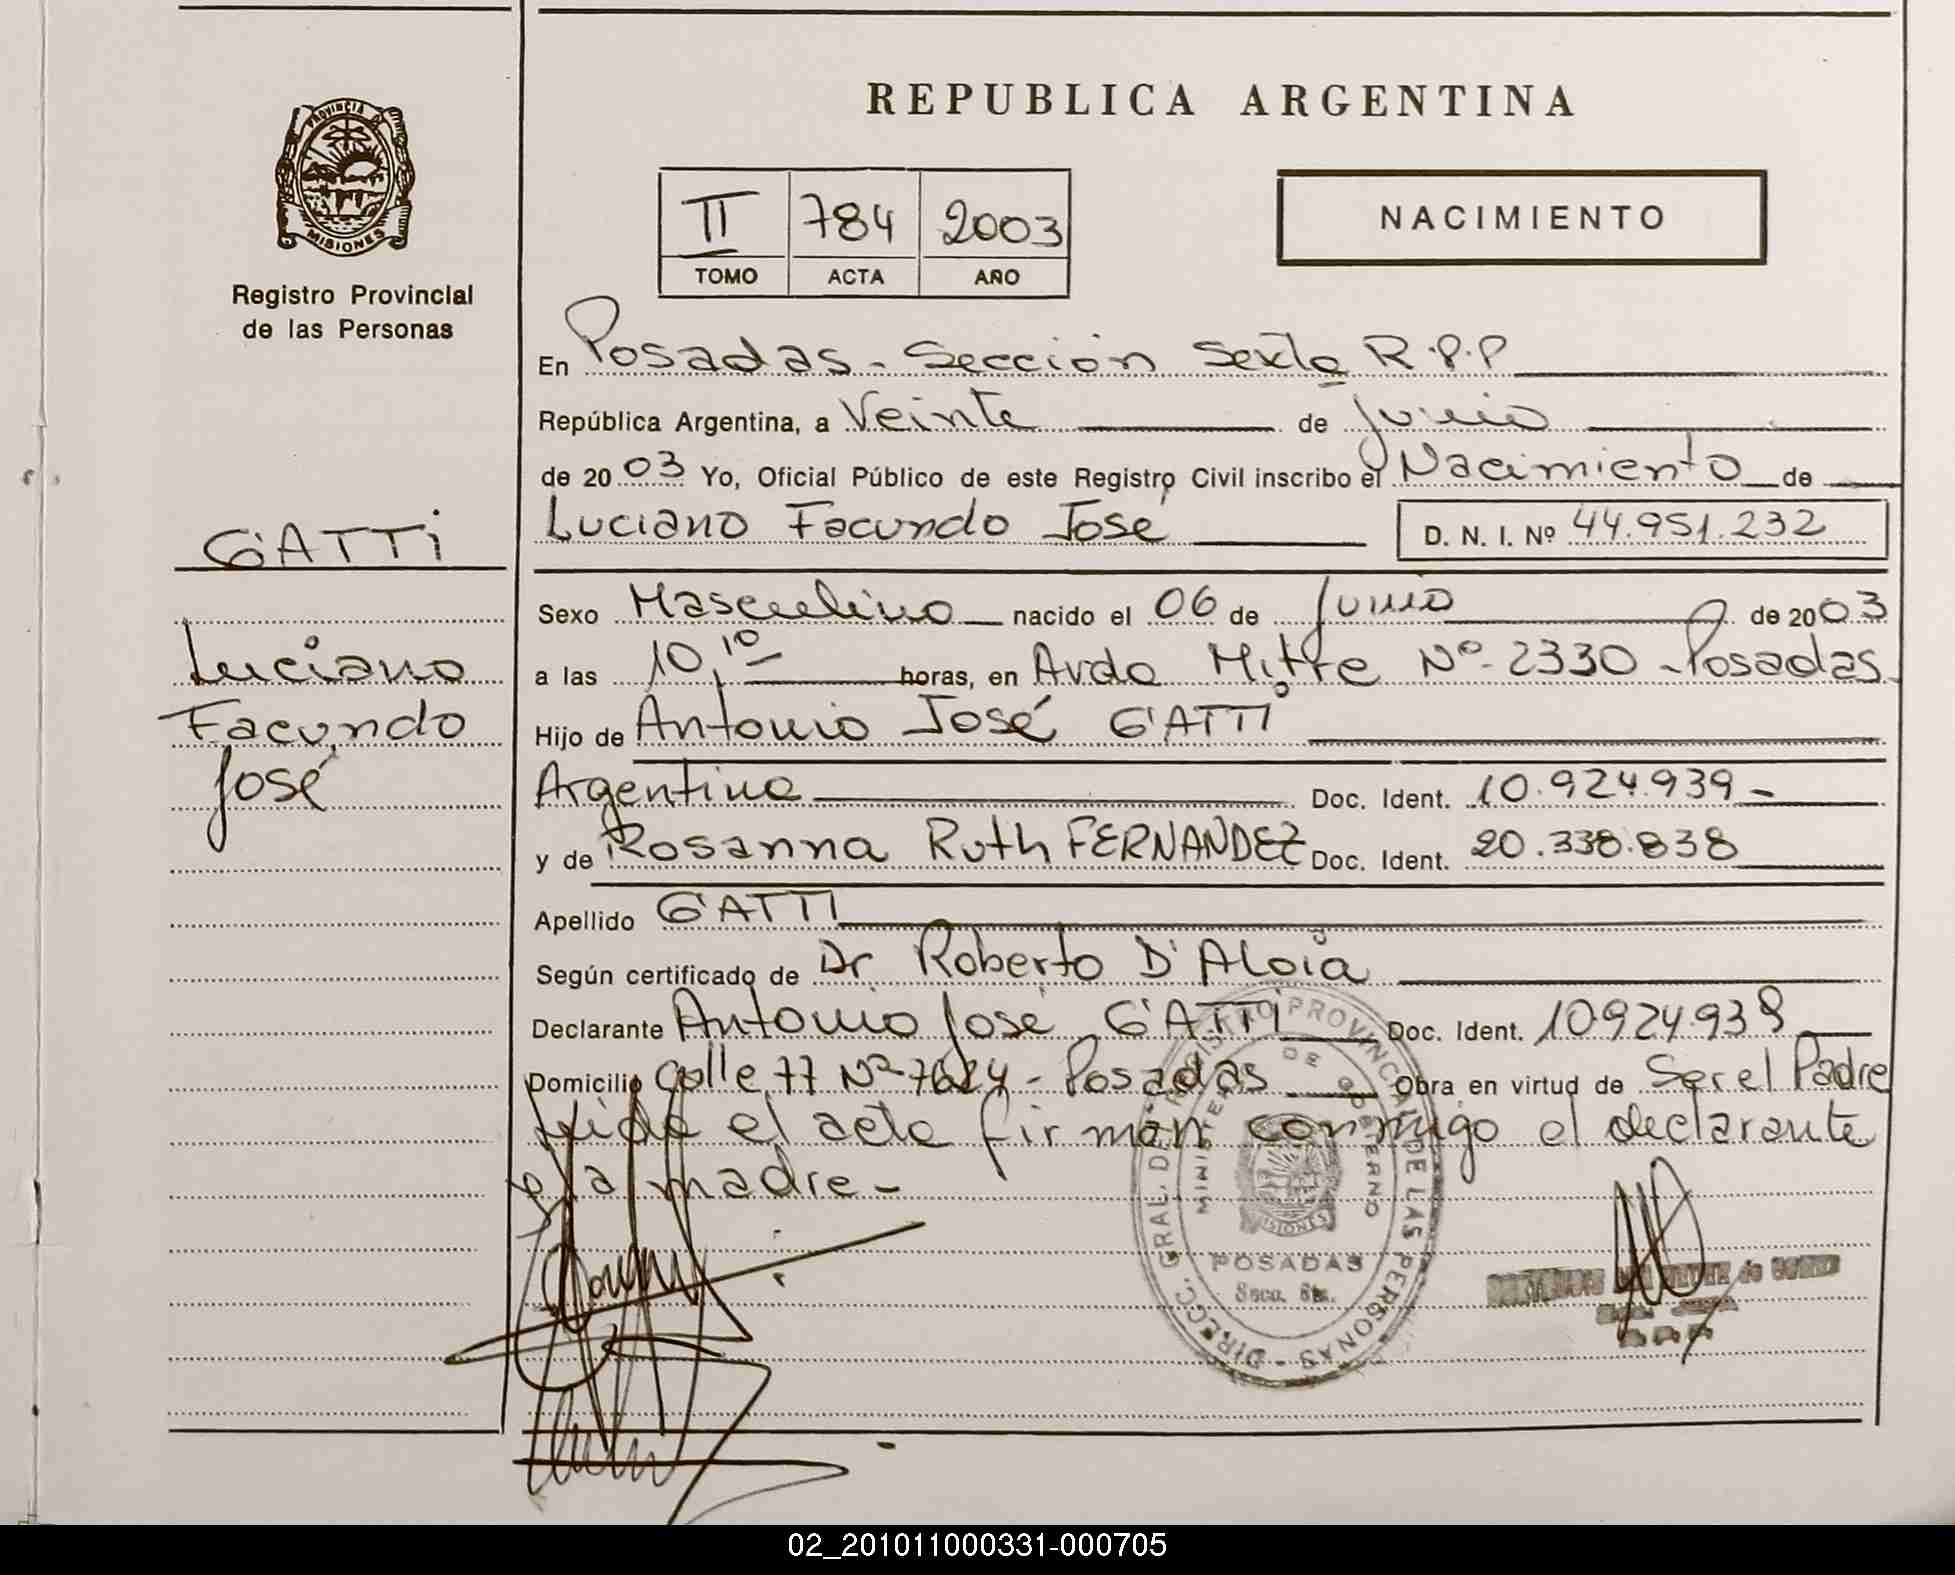 REPUBLICA ARGENTINA
PROVINCIA DE
MISIONES
Registro Provincial
de las Personas
II 784 2003
TOMO ACTA AÑO
NACIMIENTO
En Posadas - Sección Sexta R.P.P
República Argentina, a Veinte de Junio
de 2003 Yo, Oficial Público de este Registro Civil inscribo el Nacimiento de
Luciano Facundo José D. N. I. Nº 44.951.232
GATTi
Luciano
Facundo
José
Sexo Masculino nacido el 06 de Junio de 2003
a las 10,10 horas, en Avda Mitre Nº 2330 - Posadas
Hijo de Antonio José GATTI
Argentina Doc. Ident. 10.924.939 -
y de Rosanna Ruth FERNANDEZ Doc. Ident. 20.338.838
Apellido GATTI
Según certificado de Dr Roberto D'Aloia
Declarante Antonio José GATTI Doc. Ident. 10924.939
Domicilio Calle 77 Nº 7624 - Posadas Obra en virtud de Ser el Padre
Leida el acta firman conmigo el declarante
y la madre -
DIRECC. GRAL. DE REGISTRO PROVINCIAL DE LAS PERSONAS
MINISTERIO DE GOBIERNO
MISIONES
POSADAS
Secc. 6ta.
02_201011000331-000705